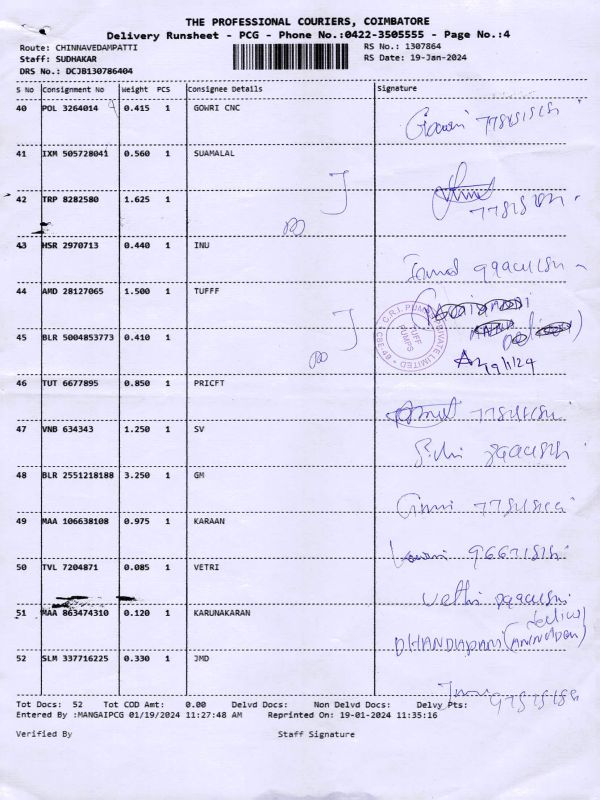 THE PROFESSIONAL COURIERS, COIMBATORE
Delivery Runsheet - PCG - Phone No.:0422-3505555 - Page No.:4
Route: CHINNAVEDAMPATTI RS No.: 1307864
Staff: SUDHAKAR RS Date: 19-Jan-2024
DRS No.: DCJB130786404
S No Consignment No Weight PCS Consignee Details Signature
40 POL 3264014 0.415 1 GOWRI CNC
Gowri
41 IXM 505728041 0.560 1 SUAMALAL
42 TRP 8282580 1.625 1
43 HSR 2970713 0.440 1 INU
44 AMD 28127065 1.500 1 TUFFF
C.R.I. PUMPS PRIVATE LIMITED
TUFF PUMPS
45 BLR 5004853773 0.410 1
19/1/24
46 TUT 6677895 0.850 1 PRICFT
47 VNB 634343 1.250 1 SV
48 BLR 2551218188 3.250 1 GM
49 MAA 106638108 0.975 1 KARAAN
50 TVL 7204871 0.085 1 VETRI
Vethi
51 MAA 863474310 0.120 1 KARUNAKARAN
DHANDAPANI
52 SLM 337716225 0.330 1 JMD
Tot Docs: 52 Tot COD Amt: 0.00 Delvd Docs: Non Delvd Docs: Delvy Pts:
Entered By :MANGAIPCG 01/19/2024 11:27:48 AM Reprinted On: 19-01-2024 11:35:16
Verified By Staff Signature